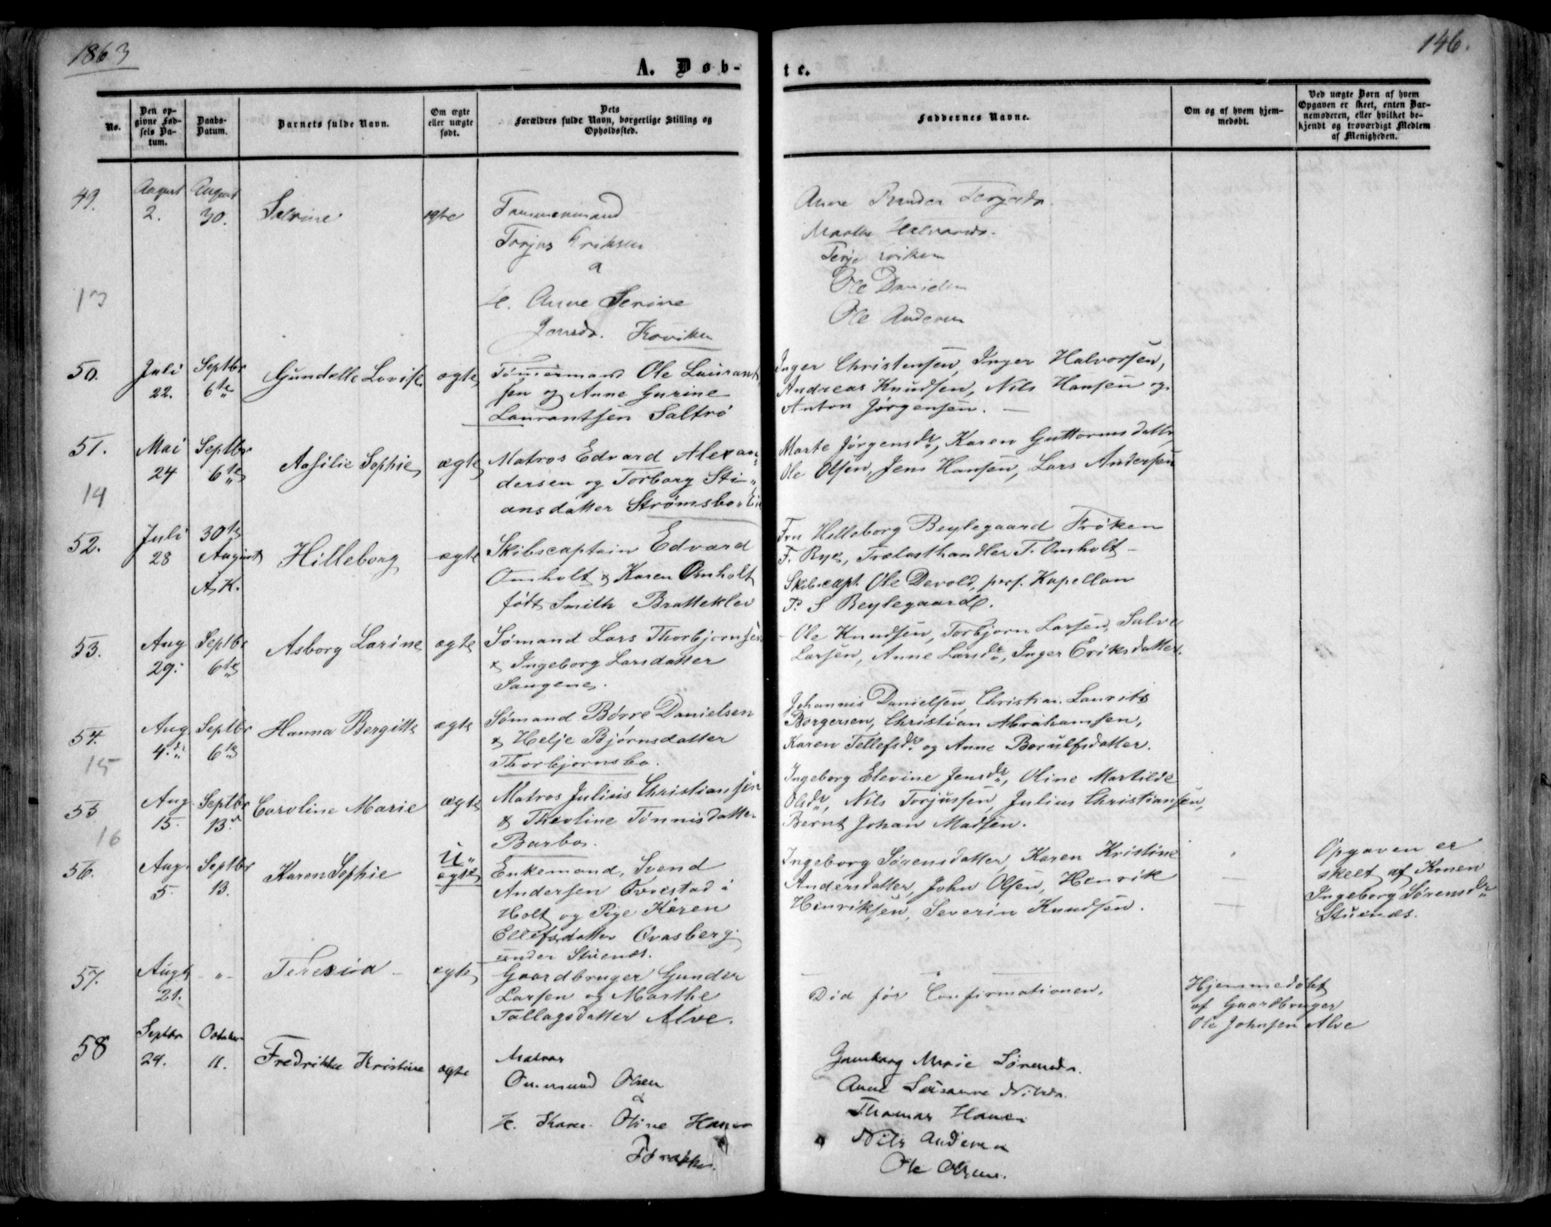 1863
146.
A. Døb-
te.
No.
Den op-
givne Fød-
sels Da-
tum.
Daabs-
Datum.
Barnets fulde Navn.
Om ægte
eller uægte
født.
Dets
Forældres fulde Navn, borgerlige Stilling og
Opholdssted.
Faddernes Navne.
Om og af hvem hjem-
medøbt.
Ved uægte Børn af hvem
Opgaven er skeet, enten Bar-
nemoderen, eller hvilket be-
kjendt og troværdigt Medlem
af Menigheden.
49.
August
2.
August
30.
Serine
ægte
Tømmermand
Torjus Eriksen
a
H. Anne Serine
Jensdr. Kroviken
Anne
Marthe
Terje
Ole Danielsen
Ole Andersen
13
50.
Juli
22.
Septbr
6te
Gundelle Lovise
ægte
Tømmermand Ole Laurant
sen og Anne Gurine
Laurantsen Saltrø
Inger Christensen, Inger Halvorsen,
Andreas Knudsen, Nils Hansen og
Anton Jørgensen. –
51.
Mai
24
Septbr
6te
Aasilie Sophie
ægte
Matros Edvard Alexan-
dersen og Torborg Sti-
ansdatter Strømsbo
Marte Jørgensdr, Karen Guttormsdatter,
Ole Olsen, Jens Hansen, Lars Andersen
14
52.
Juli
28
30te
August
A.K.
Hilleborg
ægte
Skibscaptein Edvard
Omholt & Karen Omholt
født Smith Bratteklev
Fru Hilleborg Beylegaard Frøken
F. Bye, Trælasthandler T. Omholt –
Skibscapt. Ole Devold, pers. Kapellan
P. S Beylegaard.
53.
Aug
29.
Septbr
6te
Asborg Larine
ægte
Sømand Lars Thorbjornsen
& Ingeborg Larsdatter
Songene.
Ole Knudsen, Torbjorn Larsen, Salve
Larsen, Anne Larsdr, Inger Eriksdatter.
54.
Aug
4de
Septbr
6te
Hanna Bergitte
ægte
Sømand Børre Danielsen
& Helje Bjørnsdatter
Thorbjornsbo.
Johannis Danielsen, Christian Laurits
Borgersen, Christian Abrahamsen,
Karen Tellefsdr og Anne Borulfsdatter.
15
55
Aug
15.
Septbr
13.
Caroline Marie
ægte
Matros Julius Christiansen
& Thevline Tønnisdatter
Barbo.
Ingeborg Elevine Jensdr, Oline Martilde
Olsdr, Nils Torjussen, Julius Christiansen,
Bernt Johan Madsen.
16
56.
Aug.
5
Septbr
13.
Karen Sophie
U-
ægte
Enkemand, Svend
Andersen Ørnestad i
Holt og Pige Karen
Ellefsdatter Qvasberg
under Stuenæs.
Ingeborg Sørensdatter, Karen Kristine
Andersdatter, John Olsen, Henrik
Hinriksen, Severin Knudsen.
Opgaven er
skeet af Konen
Ingeborg Sørensdr
Stuenæs.
57.
Augt
21.
"
Teresia
ægte
Gaardbruger Gunder
Larsen og Marthe
Tallagsdatter Alve.
Død før Confirmationen.
Hjemmedøbt
af Gaardbruger
Ole Johnsen Alve
58
Septbr
24.
October
11.
Fredrikke Kristine
ægte
Matros
Ommund Olsen
&
H. Karen Oline Hansen
Gunborg Marie Sørensdr.
Anne Susanne Nilsdr.
Thomas Hansen
Nils Andersen
Ole Olsen.